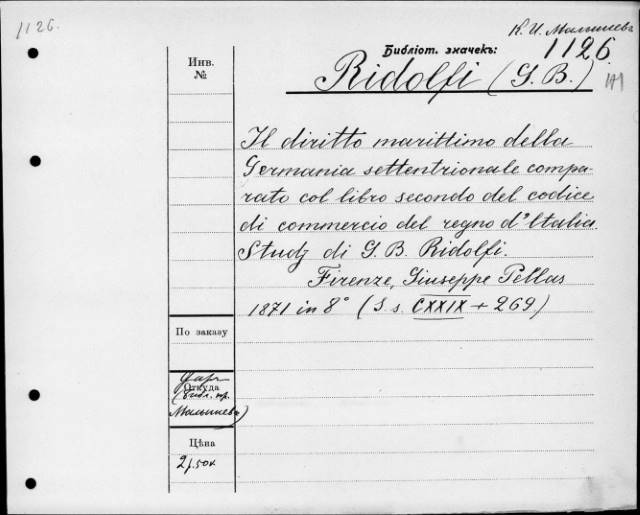 1126.
К. И. Малышевъ
Библіот. значекъ:
1126.
Инв.
№
Ridolfi (G. B.)
Il diritto marittimo della
Germania settentrionale compa-
rato col libro secondo del codice
di commercio del regno d'Italia.
Studj di G. B. Ridolfi.
Firenze, Giuseppe Pellas
1871 in 8° (S. s. CXXIX + 269.)
По заказу
Даръ
Откуда
(Библ. пр.
Малышевъ)
Цѣна
2 р. 50 к